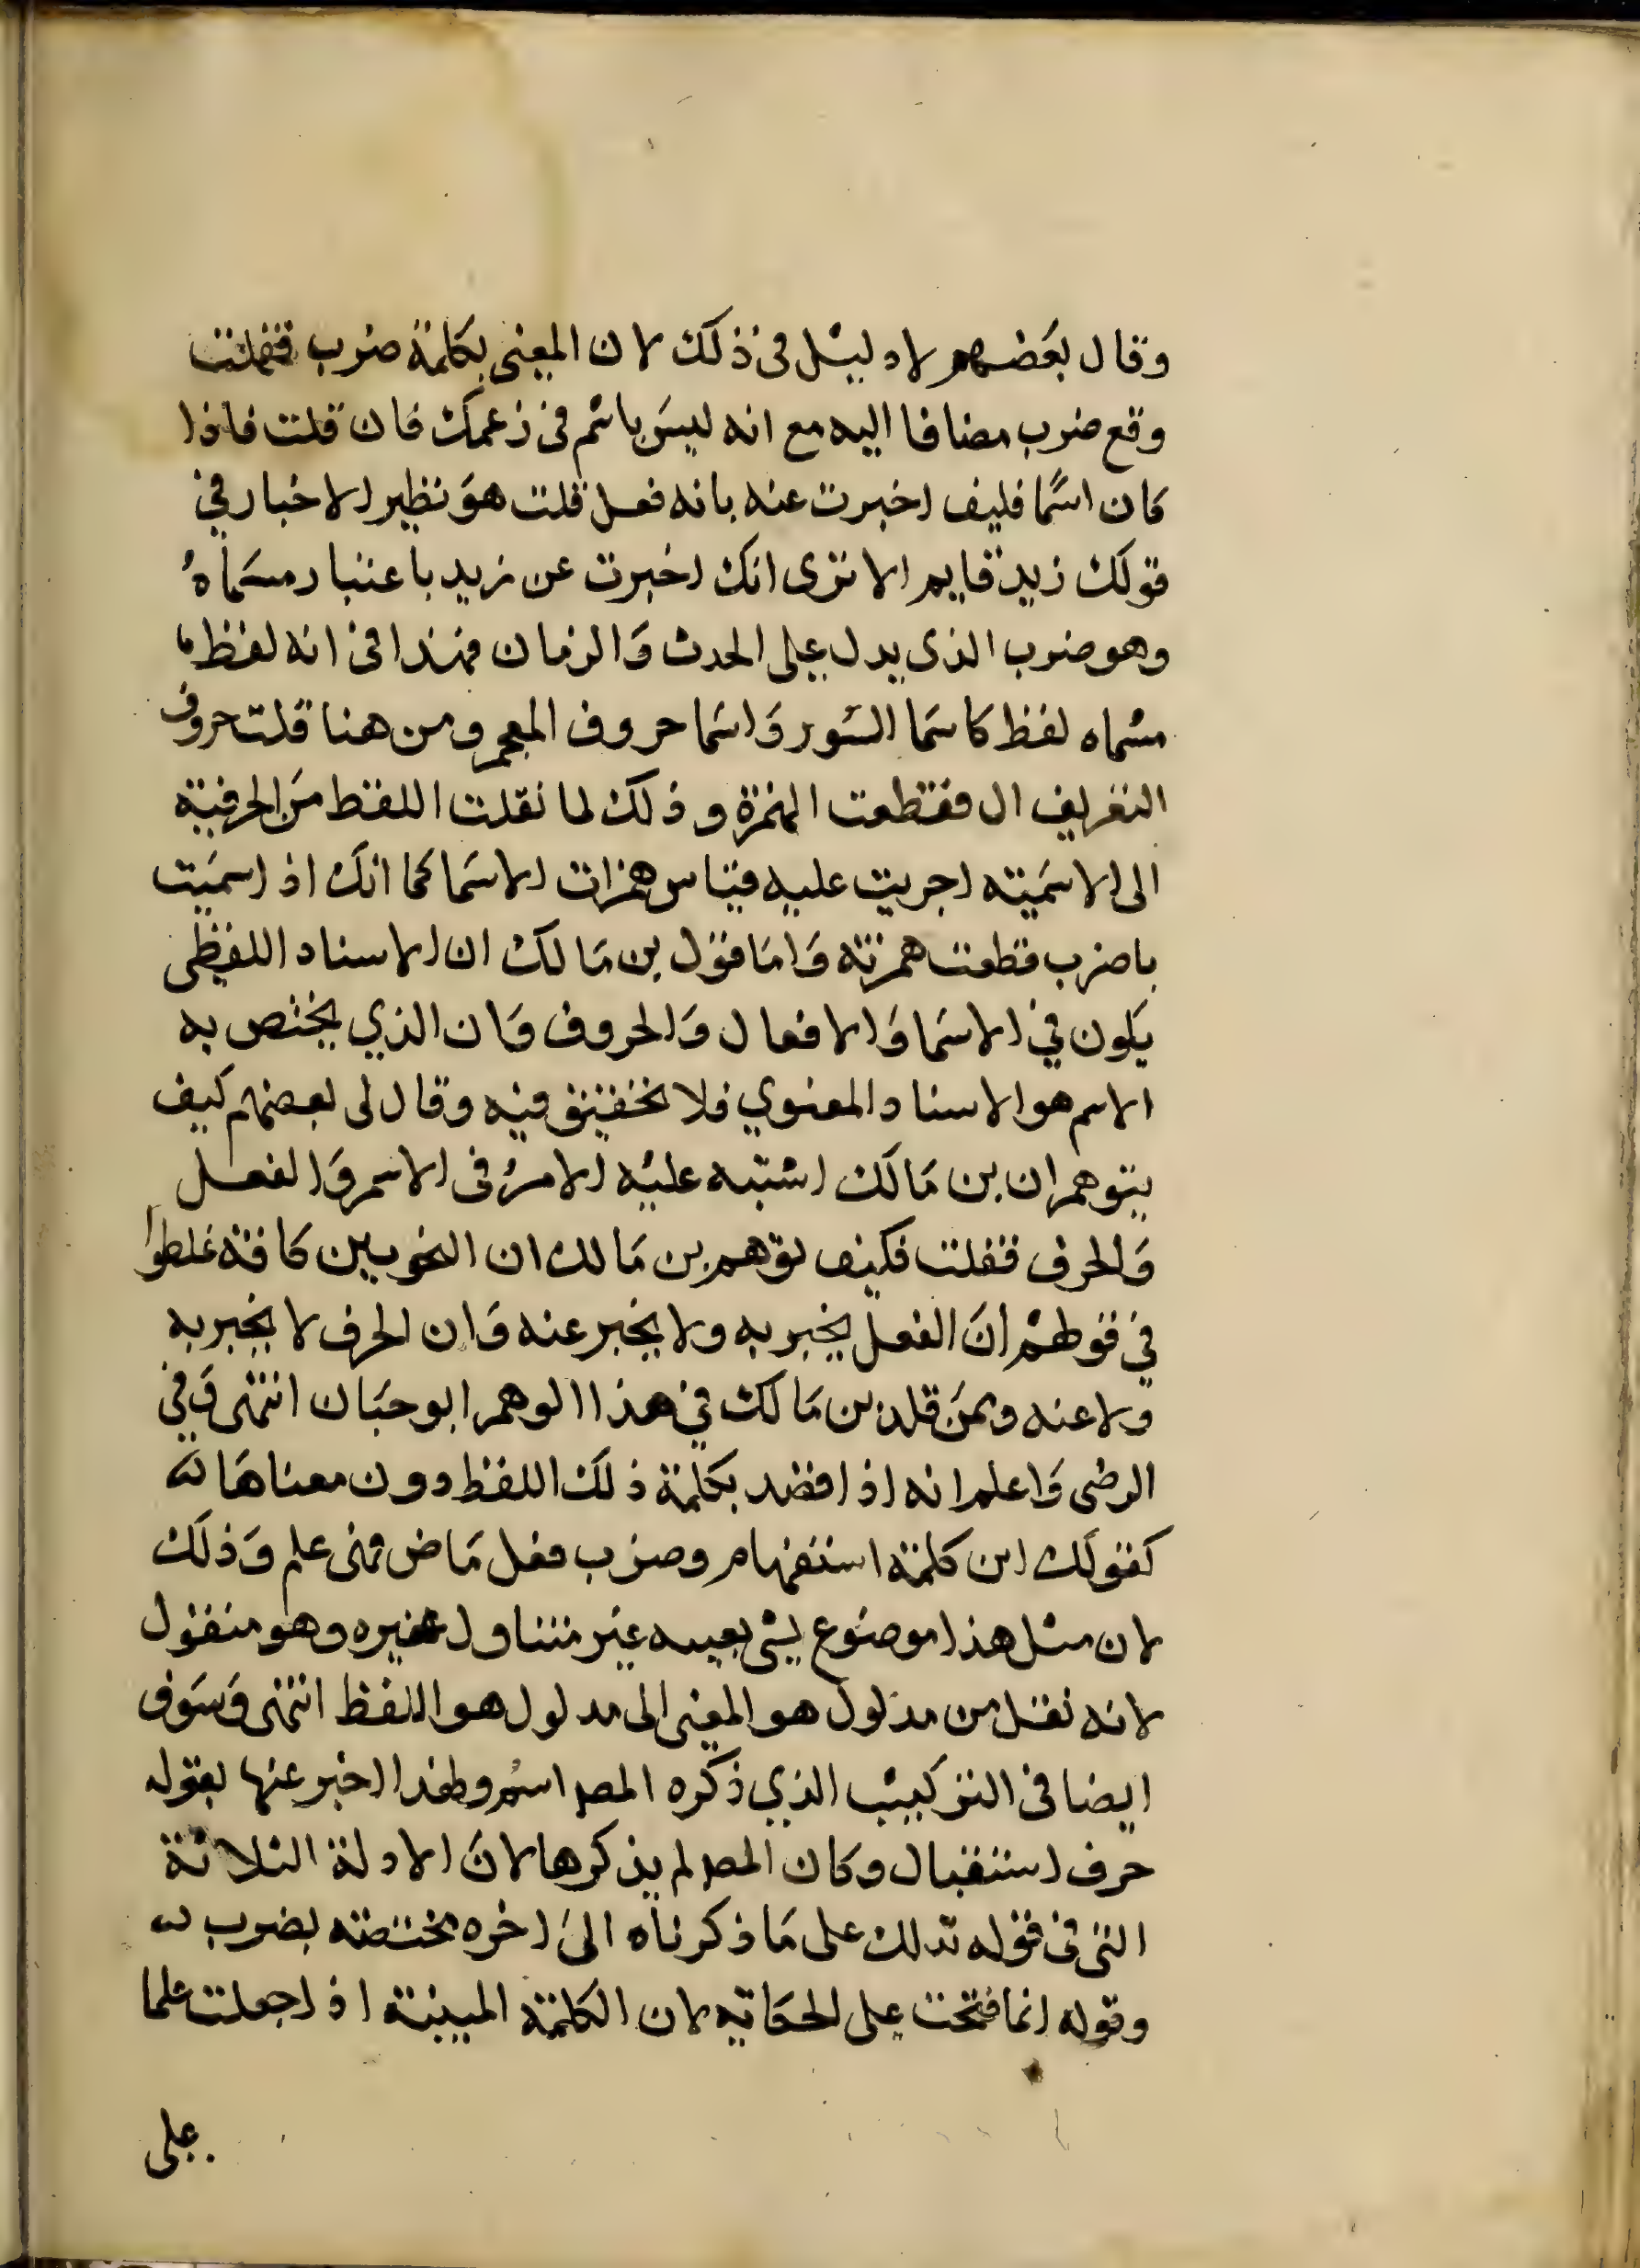 وقال بعضهم لا دليل في ذلك لان المعنى بكلمة ضرب فقلت
وقع ضرب مضافا اليه مع انه ليس باسم في زعمك فان قلت فاذا
كان اسما فليف اخبرت عنه بانه فعل قلت هو نظير الاخبار في
قولك زيد قايم الا ترى انك اخبرت عن زيد باعتبار مسماه
وهو ضرب الذى يدل على الحدث والزمان فهذا في انه لفظ
مسماه لفظ كاسما السور واسما حروف المعجم ومن هنا قلت حروف
التعريف ال فقطعت الهمزة وذلك لما نقلت اللفظ من الحرفية
الى الاسمية اجريت عليه قياس همزات الاسما كما انك اذا سميت
باضرب قطعت همزته واما قول بن مالك ان الاسناد اللفظي
يكون في الاسما والافعال والحروف وان الذي يختص به
الاسم هو الاسناد المعنوي فلا تحقيق فيه وقال لى بعضهم كيف
يتوهم ان بن مالك اشتبه عليه الامر في الاسم والفعل
والحرف فقلت فكيف توهم بن مالك ان النحويين كافة غلطوا
في قولهم ان الفعل يخبر به ولا يخبر عنه وان الحرف لا يخبر به
ولا عنه وممن قلد بن مالك في هذا الوهم ابو حيان انتهى وفي
الرضى واعلم انه اذا قصد بكلمة ذلك اللفظ دون معناها
كقولك اين كلمة استفهام وضرب فعل ماض فهى علم وذلك
لان مثل هذا موضوع لشى بعينه غير متناول غيره وهو منقول
لانه نقل من مدلول هو المعنى الى مدلول هو اللفظ انتهى وسوف
ايضا في التركيب الذي ذكره المصر اسم ولهذا اخبر عنها بقوله
حرف استقبال وكان المصر لم يذكرها لان الادلة الثلاثة
التى في قوله تدلك على ما ذكرناه الى اخره مختصة بضرب
وقوله انما فتحت على الحكاية لان الكلمة المبينة اذا جعلت علما
على